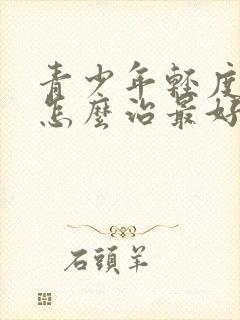 青少年輕度
怎麼治最好
石頭羊